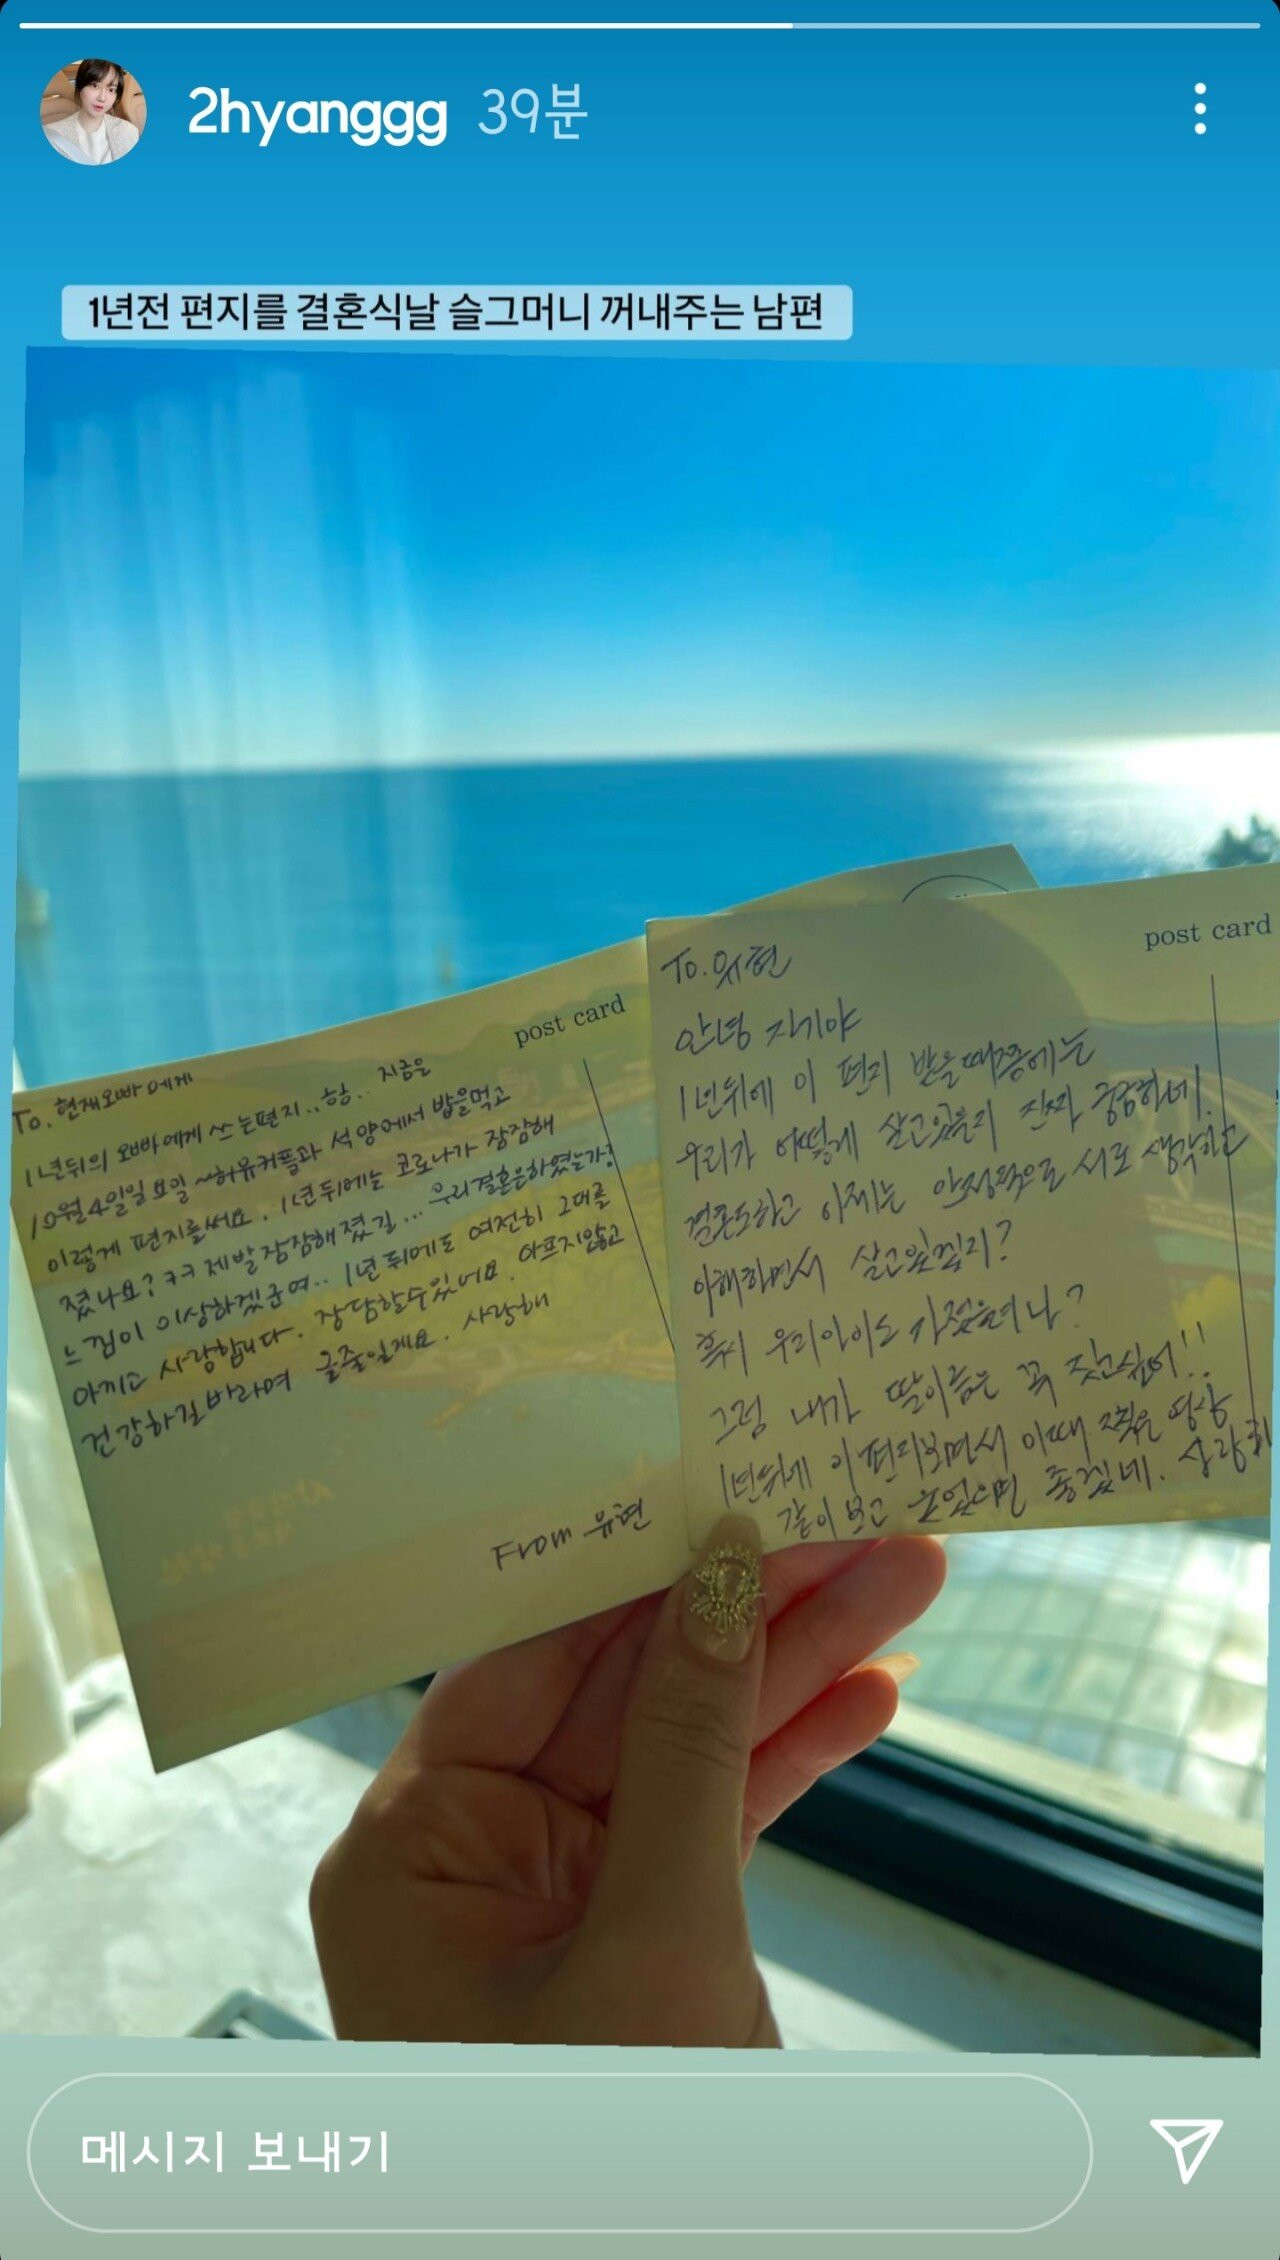 2hyanggg 39분
1년전 편지를 결혼식날 슬그머니 꺼내주는 남편
post card
To. 현재오빠에게
1년뒤의 오빠에게 쓰는편지..ㅎㅎ.. 지금은
10월4일일요일 ~허유커플과 석양에서 밥을먹고
이렇게 편지를써요. 1년뒤에는 코로나가 잠잠해
졌나요? ㅋㅋ 제발잠잠해졌길... 우리결혼은하였는가?
느낌이 이상하겠군여.. 1년뒤에도 여전히 그대를
아끼고 사랑합니다. 장담할수있어요. 아프지않고
건강하길바라며 글줄일게요. 사랑해
From 유현
post card
To. 유현
안녕 자기야
1년뒤에 이 편지 받을때쯤에는
우리가 어떻게 살고있을지 진짜 궁금하네.
결혼도하고 이제는 안정적으로 서로 생각하고
이해하면서 살고있겠지?
혹시 우리아이도 가졌을려나?
그럼 내가 딸이름은 꼭 짓고싶어!!
1년뒤에 이편지보면서 이때 찍은 영상
같이 보고 웃었으면 좋겠네. 사랑해
메시지 보내기